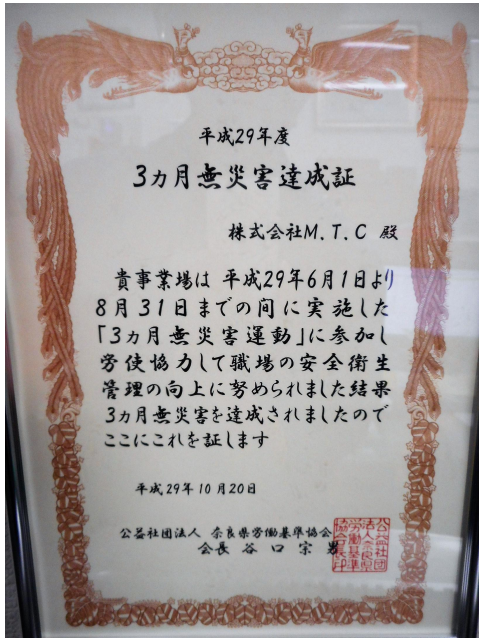 平成29年度
3カ月無災害達成証
株式会社M.T.C 殿
貴事業場は 平成29年6月1日より
8月31日までの間に実施した
「3カ月無災害運動」に参加し
労使協力して職場の安全衛生
管理の向上に努められました結果
3カ月無災害を達成されましたので
ここにこれを証します
平成29年10月20日
公益社団法人 奈良県労働基準協会
会長 谷口宗男
公益社団
法人奈良県
労働基準
協会長印